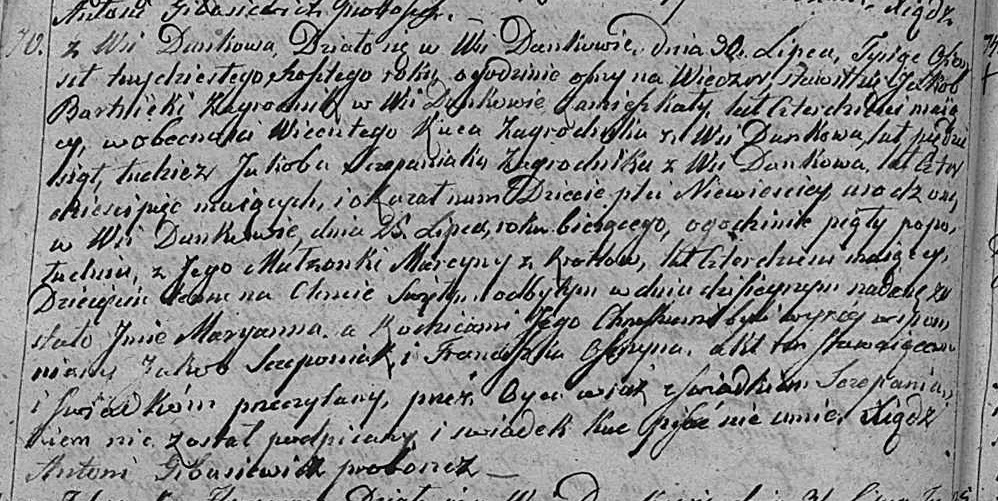 Antoni Gibasiewicz proboszcz. — Xiądz
70. z Wsi Dankowa, Działo się w Wsi Dankowie, dnia Lipca, Tysiąc Ośm
set trzydziestego szostego roku, o godzinie osmy na Wieczor, stawił się Jakob
Zagrodnik w Wsi Dankowie zamieszkały, lat Czterdzieści maią
cy, w obecności Wicentego Kuca Zagrodnika z Wsi Dankowa, lat pięćdzie
siąt, tudzież Jakoba Szczepaniaka Zagrodnika z Wsi Dankowa, lat Czter
dzieści pięć maiących, i okazał nam Dziecie płci Niewieściey, urodzone
w Wsi Dankowie, dnia Lipca, roku bieżącego, o godzinie piąty popo,
łudniu, z Jego Małżonki Marcyny z Krolow, lat Czterdzieści maiący,
Dziecięciu temu na Chrzcie Świętym, odbytym w dniu dzisieyszym nadane zo
stało Imie Maryanna, a Rodzicami Jego Chrzestnemi byli wyżey wspom
niany Jakob Szczepaniak, i Franciszka akt ten stawaiącemu
i Świadkom przeczytany, przez Oyca wraz z Świadkiem Szczepania,
kiem nie został podpisany, i swiadek Kuc pisać nie umie. Xiądz
Antoni Gibasiewicz proboszcz —
Działo się w Wsi Dankowie dnia Lipca